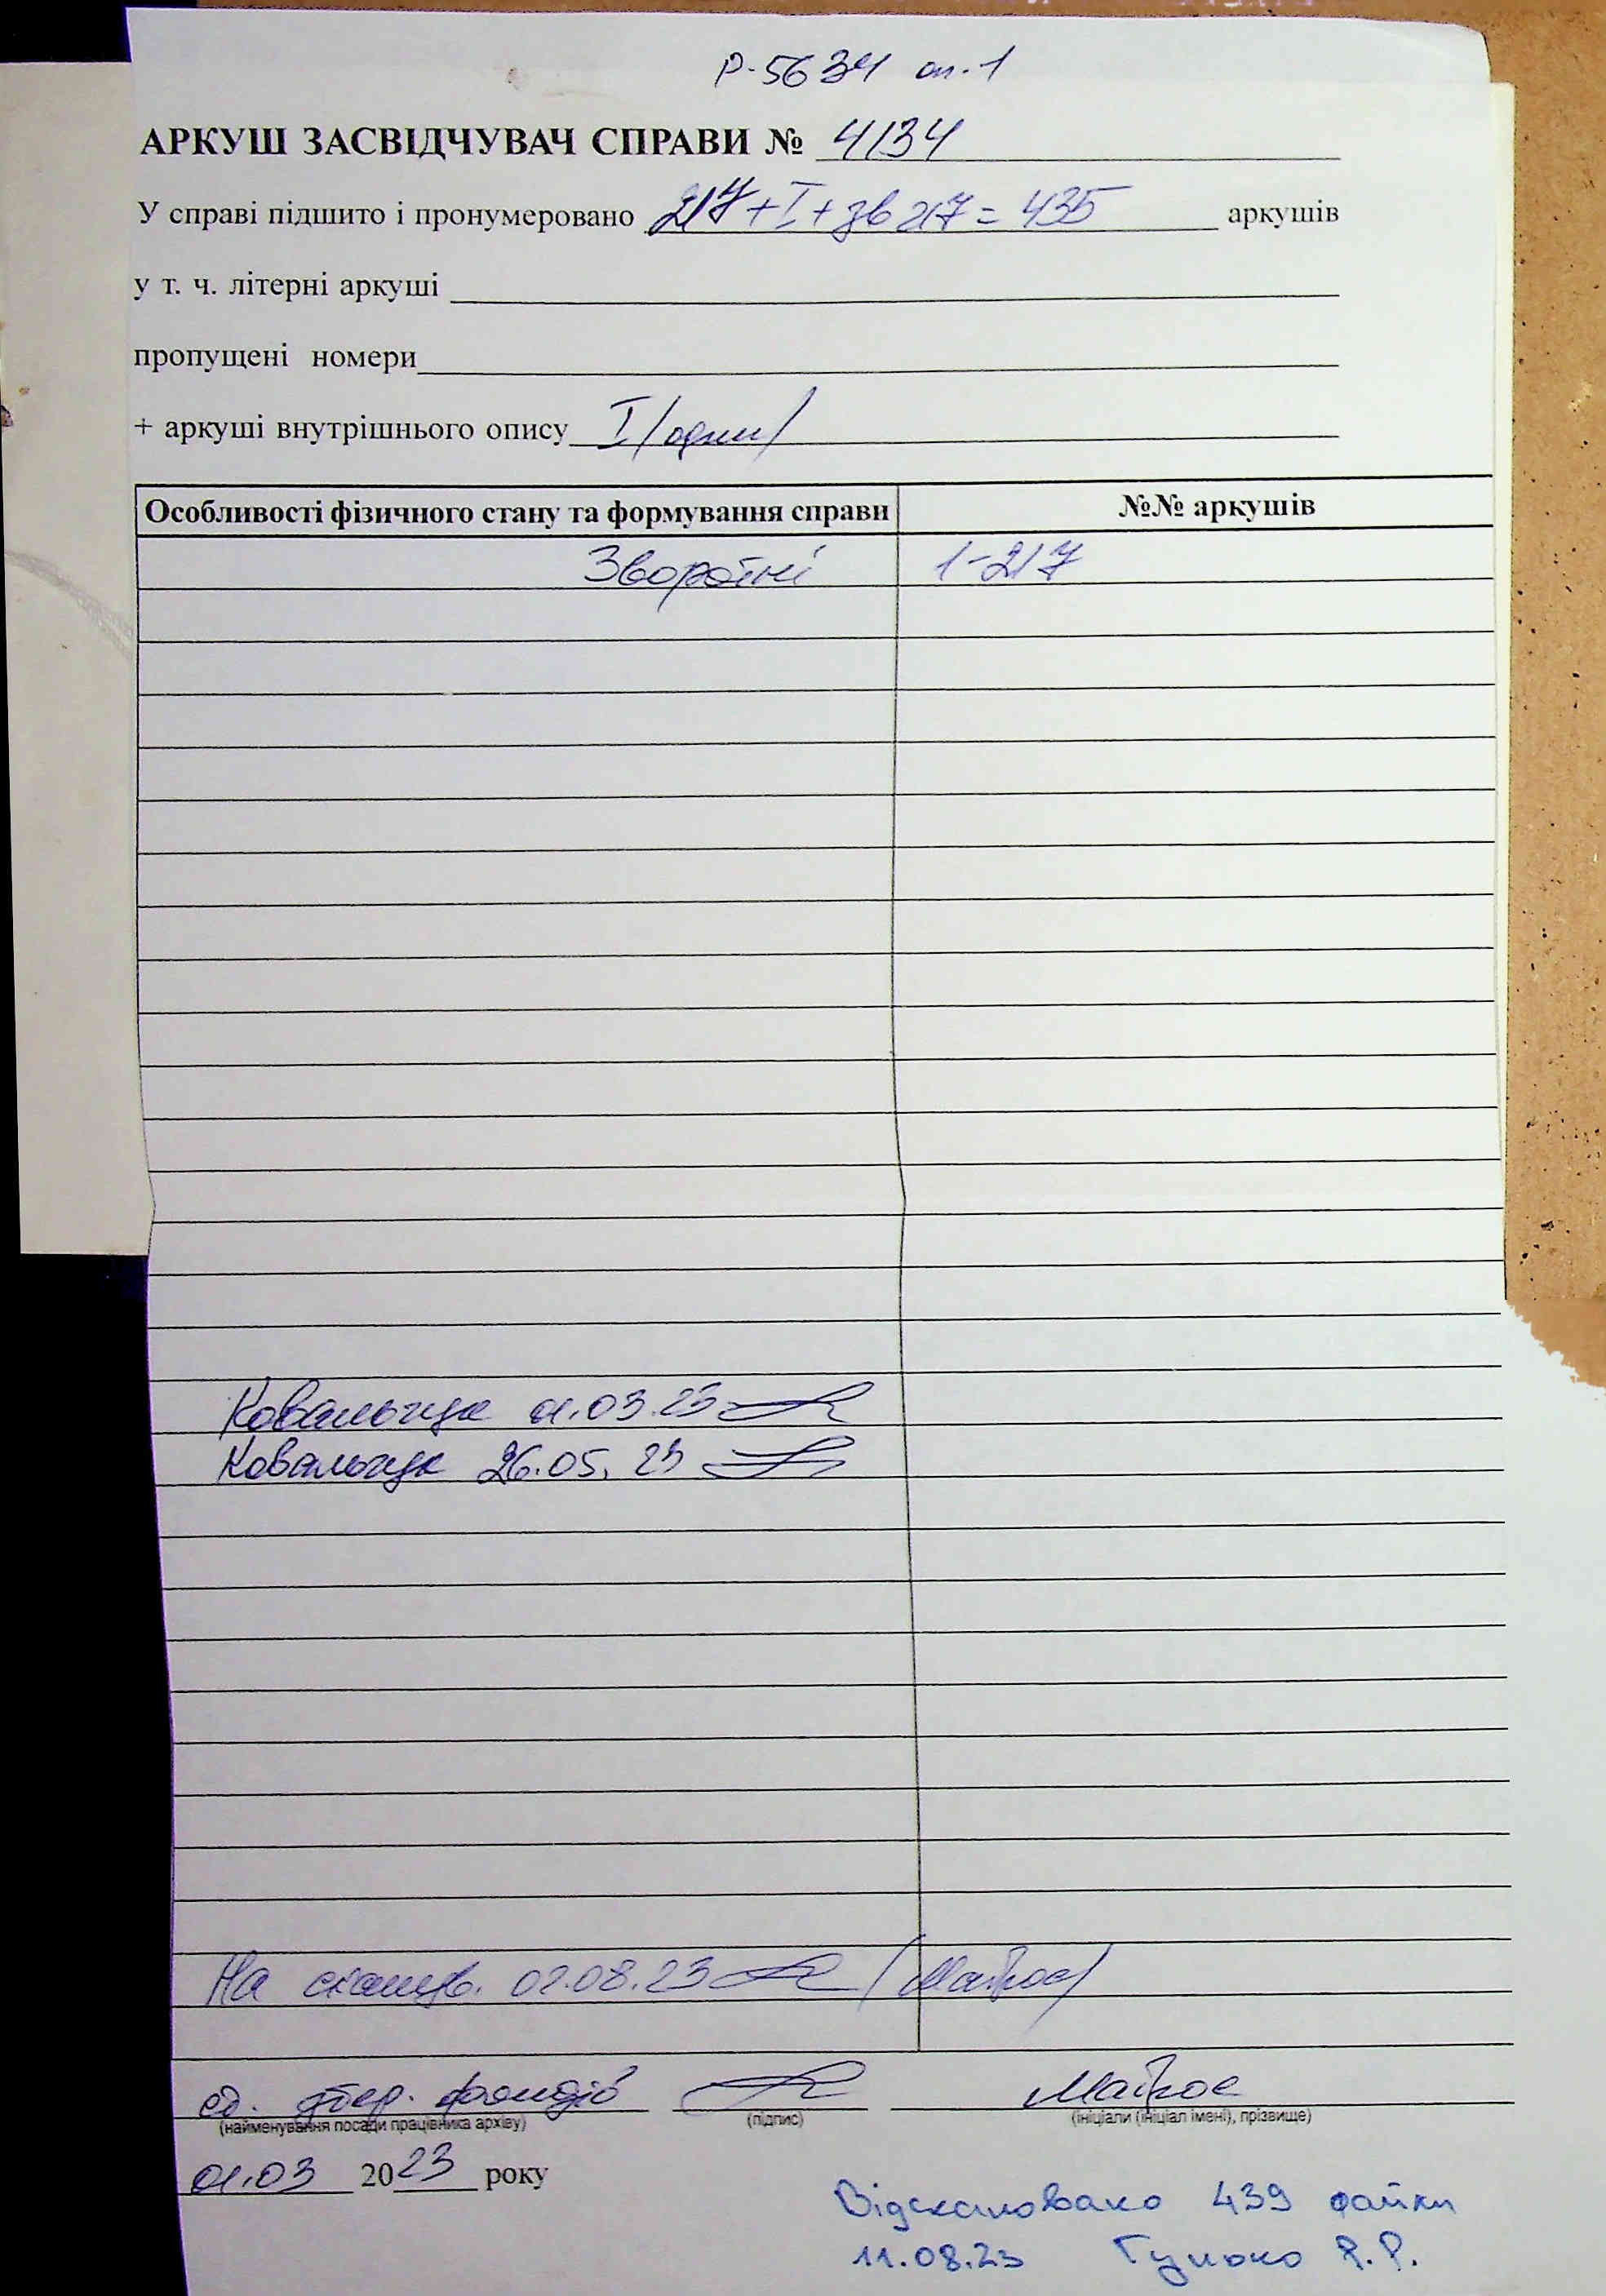 Р-5634 оп.1
АРКУШ ЗАСВІДЧУВАЧ СПРАВИ № 4134
У справі підшито і пронумеровано 217+I+зв 217=435 аркушів
у т. ч. літерні аркуші
пропущені номери
+ аркуші внутрішнього опису I/один/
Особливості фізичного стану та формування справи №№ аркушів
Зворотні 1-217
Ковальчук 01.03.23
Ковальчук 26.05.23
На сканув. 02.08.23 (Матрос)
фондів Матрос
(найменування посади працівника архіву) (підпис) (ініціали (ініціал імені), прізвище)
01.03 2023 року
Відскановано 439 файли
11.08.23 Гулько Р.Р.